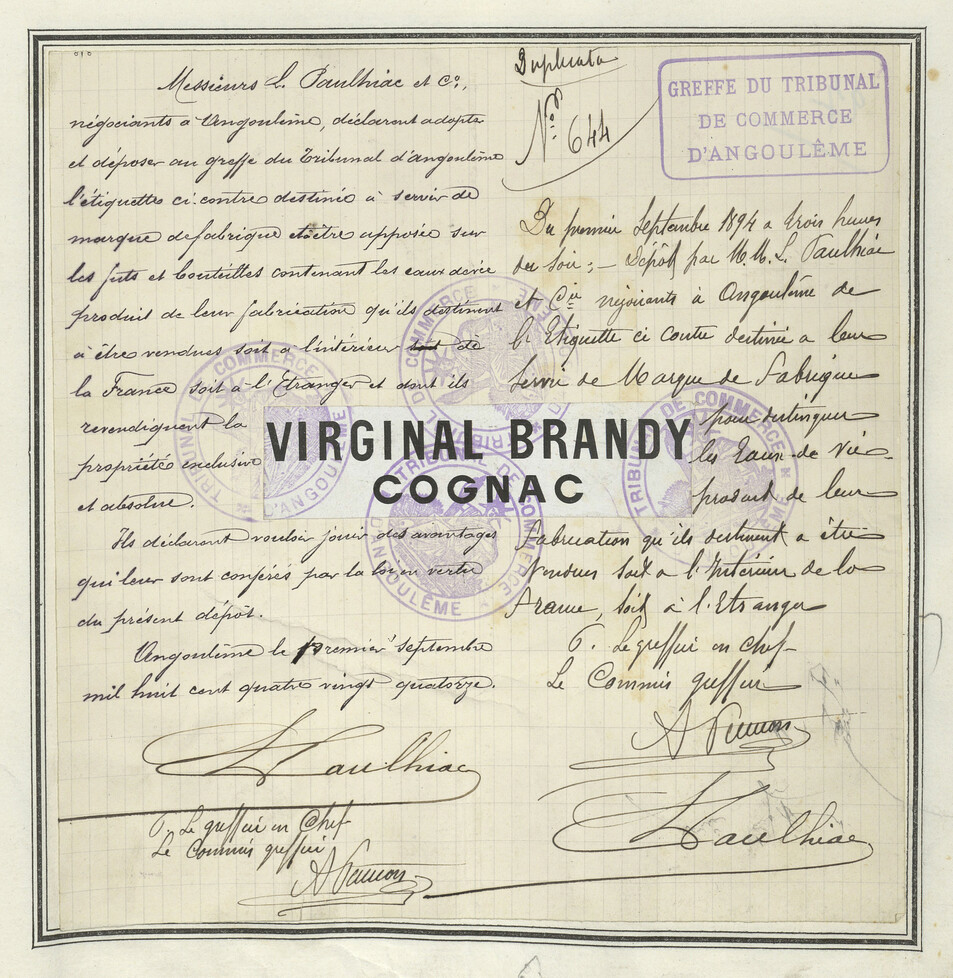 Messieurs L. Paulhiac et Cº,
négociants à Angoulême, déclarent adopter
et déposer au greffe du Tribunal d'angoulême
l'étiquette ci-contre destinée à servir de
marque de fabrique et être apposée sur
les futs et bouteilles contenant les eaux de vie
produit de leur fabrication qu'ils destinent
à être vendues soit à l'intérieur de
la France soit à l'Étranger et dont ils
revendiquent la
propriété exclusive
et absolue.
Ils déclarent vouloir jouir des avantages
qui leur sont conférés par la loi en vertu
du présent dépôt.
Angoulême le premier septembre
mil huit cent quatre vingt quatorze.
L Paulhiac
P. Le greffier en Chef
Le Commis greffier
Duplicata
Nº 644
GREFFE DU TRIBUNAL
DE COMMERCE
D'ANGOULÊME
Du premier Septembre 1894 a trois heures
du soir; – Dépôt par M.M. L. Paulhiac
et Cie négociants à Angoulême de
l'Etiquette ci contre destinée a leur
Servir de Marque de Fabrique
pour distinguer
les Eaux-de-vie
produit de leur
Fabrication qu'ils destinent a être
Vendues soit a l'Intérieur de la
France, soit à l'Etranger
P. Le greffier en chef
Le Commis greffier
L Paulhiac
VIRGINAL BRANDY
COGNAC
TRIBUNAL DE COMMERCE
D'ANGOULÊME
TRIBUNAL DE COMMERCE
TRIBUNAL DE COMMERCE
D'ANGOULÊME
TRIBUNAL DE COMMERCE